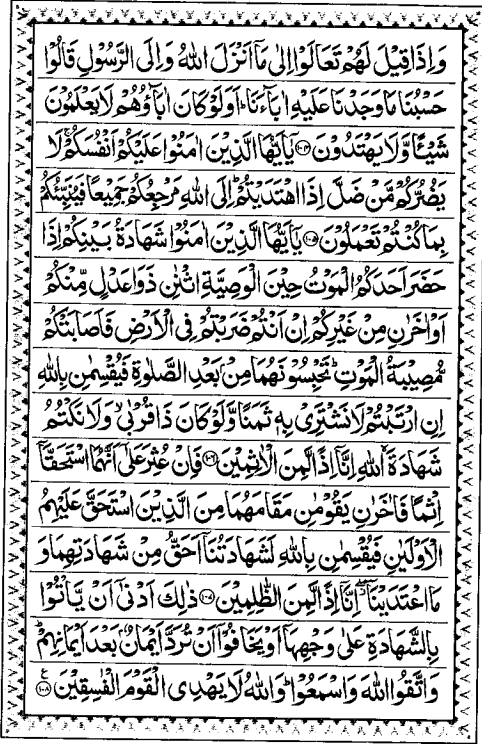 وَاِذَا قِيْلَ لَهُمْ تَعَالَوْا اِلٰى مَآ اَنْزَلَ اللّٰهُ وَاِلَى الرَّسُوْلِ قَالُوْا
حَسْبُنَا مَا وَجَدْنَا عَلَيْهِ اٰبَآءَنَا ؕ اَوَلَوْ كَانَ اٰبَآؤُهُمْ لَا يَعْلَمُوْنَ
شَيْـًٔا وَّلَا يَهْتَدُوْنَ ۝۱۰۴ يٰٓاَيُّهَا الَّذِيْنَ اٰمَنُوْا عَلَيْكُمْ اَنْفُسَكُمْ ۚ لَا
يَضُرُّكُمْ مَّنْ ضَلَّ اِذَا اهْتَدَيْتُمْ ؕ اِلَى اللّٰهِ مَرْجِعُكُمْ جَمِيْعًا فَيُنَبِّئُكُمْ
بِمَا كُنْتُمْ تَعْمَلُوْنَ ۝۱۰۵ يٰٓاَيُّهَا الَّذِيْنَ اٰمَنُوْا شَهَادَةُ بَيْنِكُمْ اِذَا
حَضَرَ اَحَدَكُمُ الْمَوْتُ حِيْنَ الْوَصِيَّةِ اثْنٰنِ ذَوَا عَدْلٍ مِّنْكُمْ
اَوْ اٰخَرٰنِ مِنْ غَيْرِكُمْ اِنْ اَنْتُمْ ضَرَبْتُمْ فِى الْاَرْضِ فَاَصَابَتْكُمْ
مُّصِيْبَةُ الْمَوْتِ ؕ تَحْبِسُوْنَهُمَا مِنْۢ بَعْدِ الصَّلٰوةِ فَيُقْسِمٰنِ بِاللّٰهِ
اِنِ ارْتَبْتُمْ لَا نَشْتَرِىْ بِهٖ ثَمَنًا وَّلَوْ كَانَ ذَا قُرْبٰى ۙ وَلَا نَكْتُمُ
شَهَادَةَ ۙ اللّٰهِ اِنَّآ اِذًا لَّمِنَ الْاٰثِمِيْنَ ۝۱۰۶ فَاِنْ عُثِرَ عَلٰٓى اَنَّهُمَا اسْتَحَقَّآ
اِثْمًا فَاٰخَرٰنِ يَقُوْمٰنِ مَقَامَهُمَا مِنَ الَّذِيْنَ اسْتَحَقَّ عَلَيْهِمُ
الْاَوْلَيٰنِ فَيُقْسِمٰنِ بِاللّٰهِ لَشَهَادَتُنَآ اَحَقُّ مِنْ شَهَادَتِهِمَا وَ
مَا اعْتَدَيْنَآ ۖ اِنَّآ اِذًا لَّمِنَ الظّٰلِمِيْنَ ۝۱۰۷ ذٰلِكَ اَدْنٰٓى اَنْ يَّاْتُوْا
بِالشَّهَادَةِ عَلٰى وَجْهِهَآ اَوْ يَخَافُوْٓا اَنْ تُرَدَّ اَيْمَانٌۢ بَعْدَ اَيْمَانِهِمْ ؕ
وَاتَّقُوا اللّٰهَ وَاسْمَعُوْا ؕ وَاللّٰهُ لَا يَهْدِى الْقَوْمَ الْفٰسِقِيْنَ ۝۱۰۸ ع